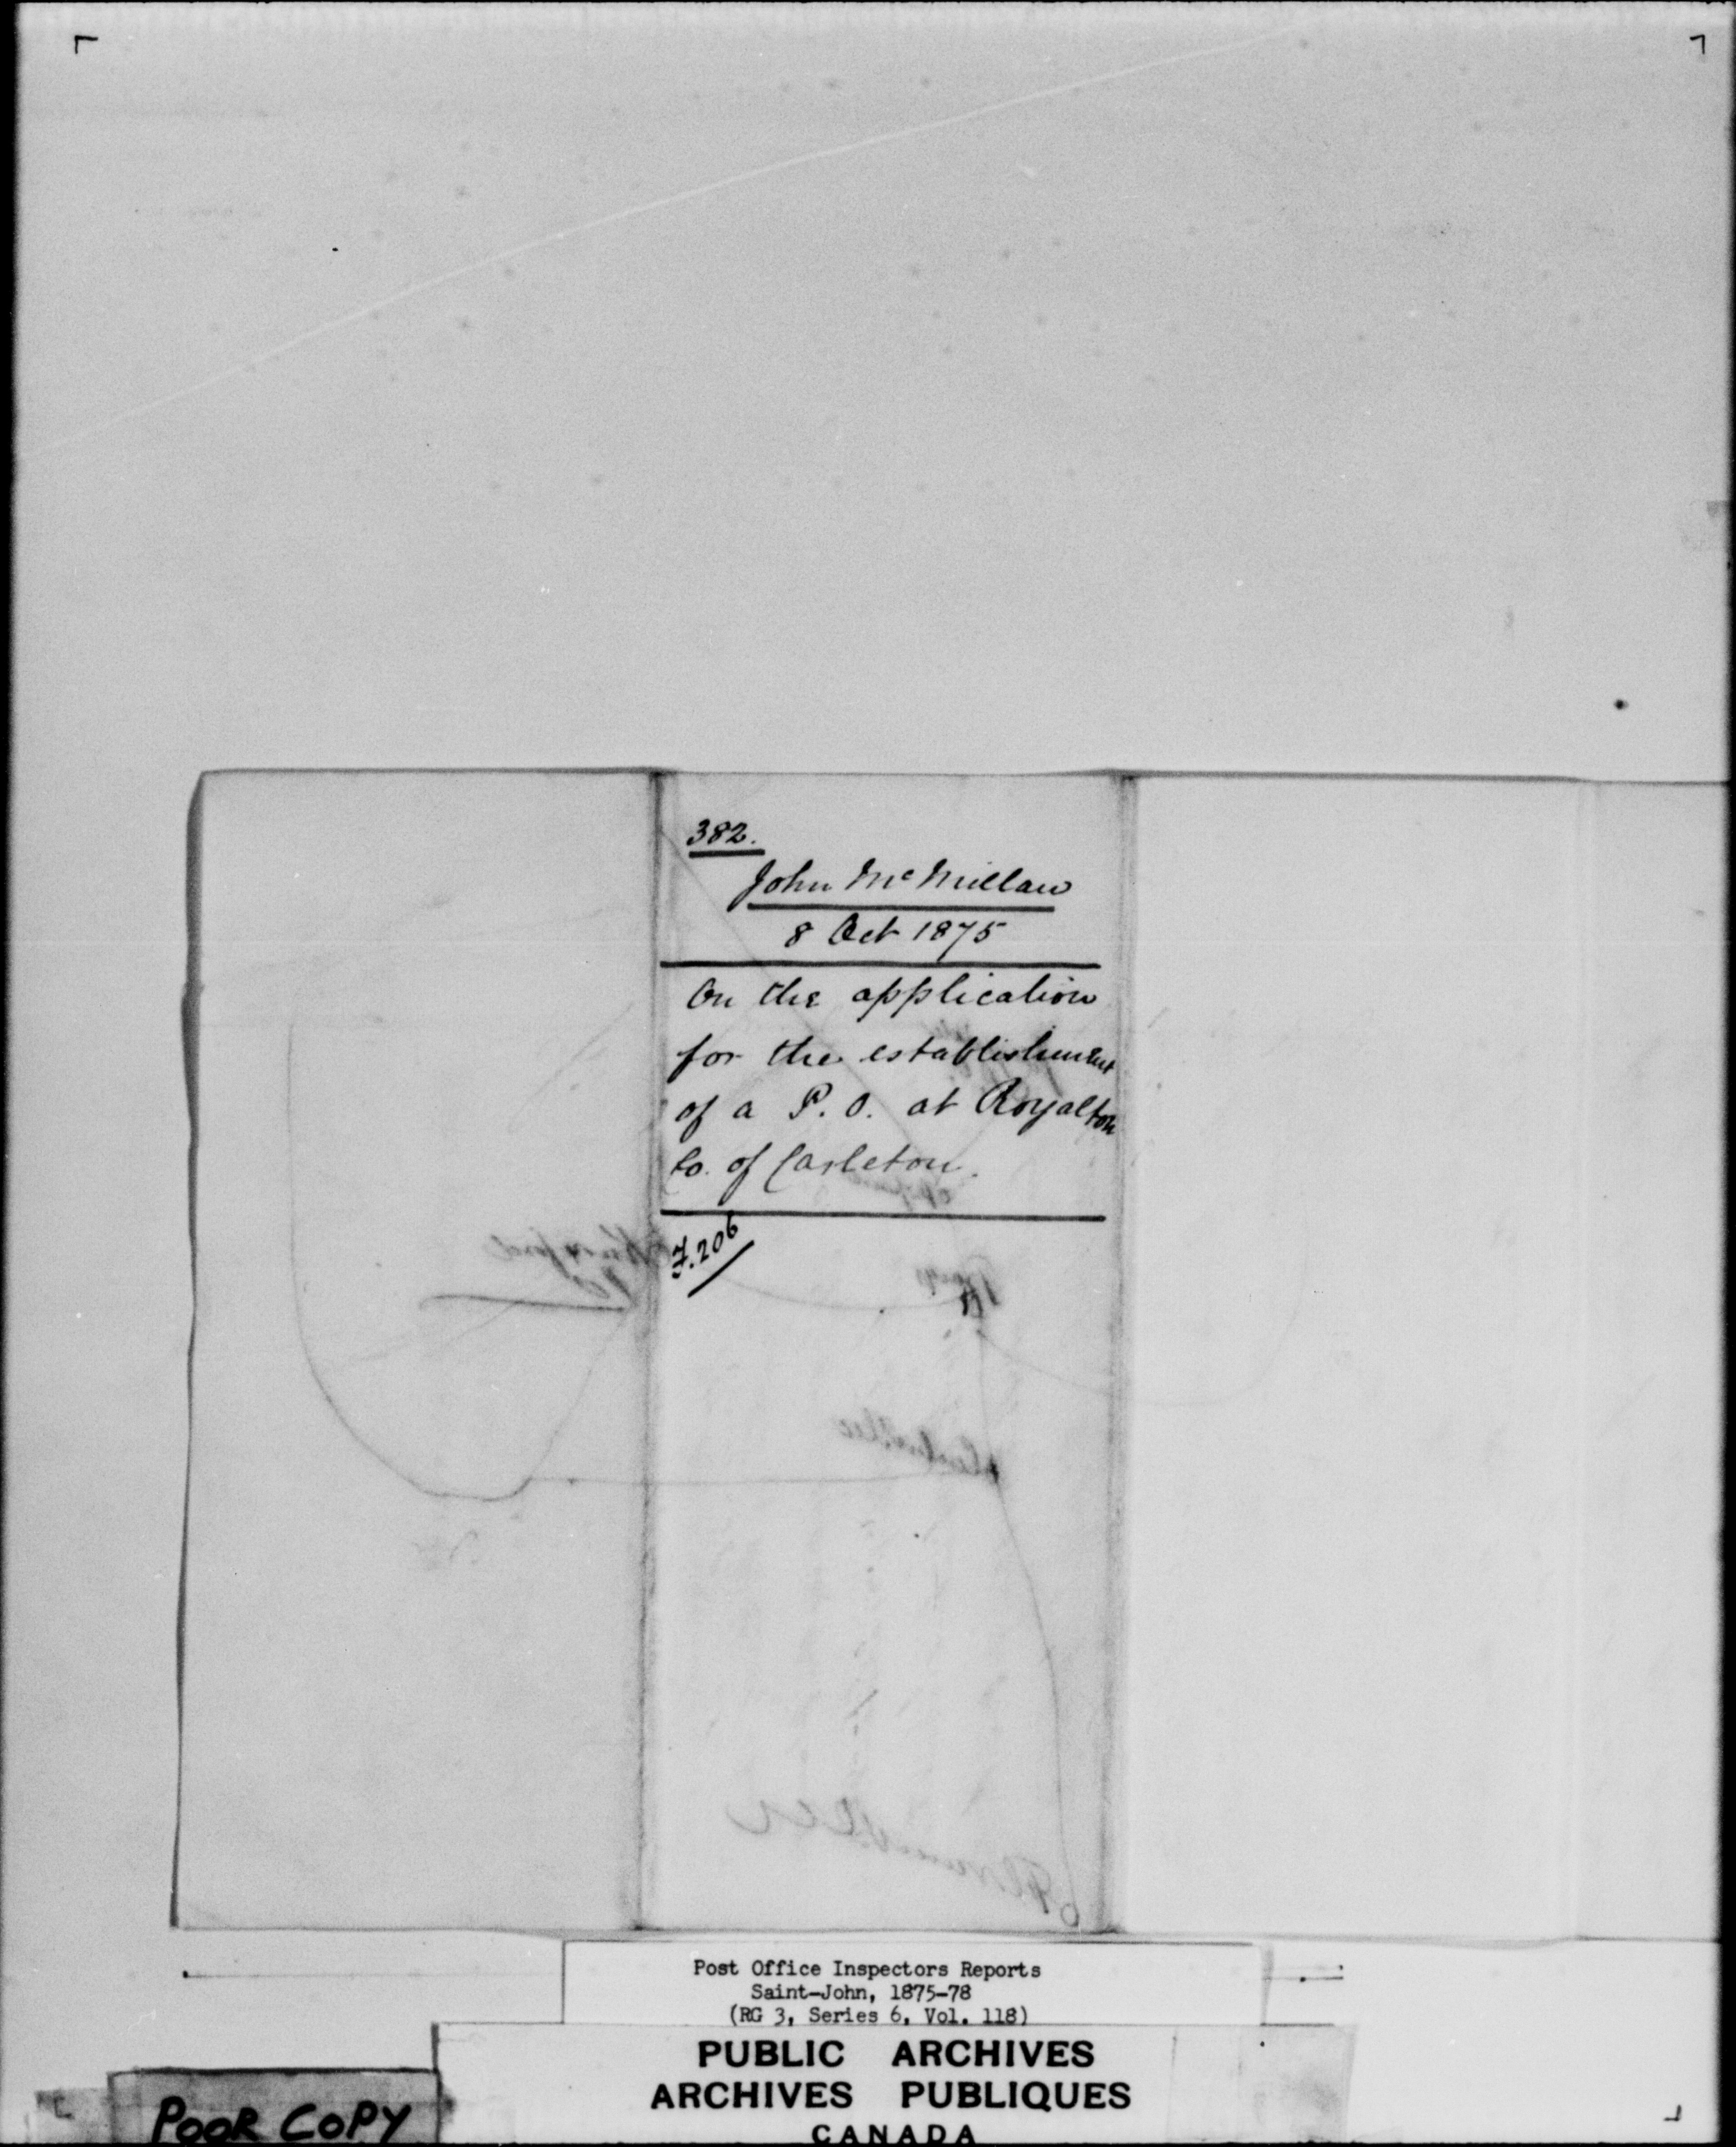 382.
John McMillan
8 Oct 1875
On the application
for the establishment
of a P.O. at Royalton
Co. of Carleton.
F.206
Post Office Inspectors Reports
Saint-John, 1875-78
(RG 3, Series 6, Vol. 118)
PUBLIC ARCHIVES
ARCHIVES PUBLIQUES
CANADA
POOR COPY